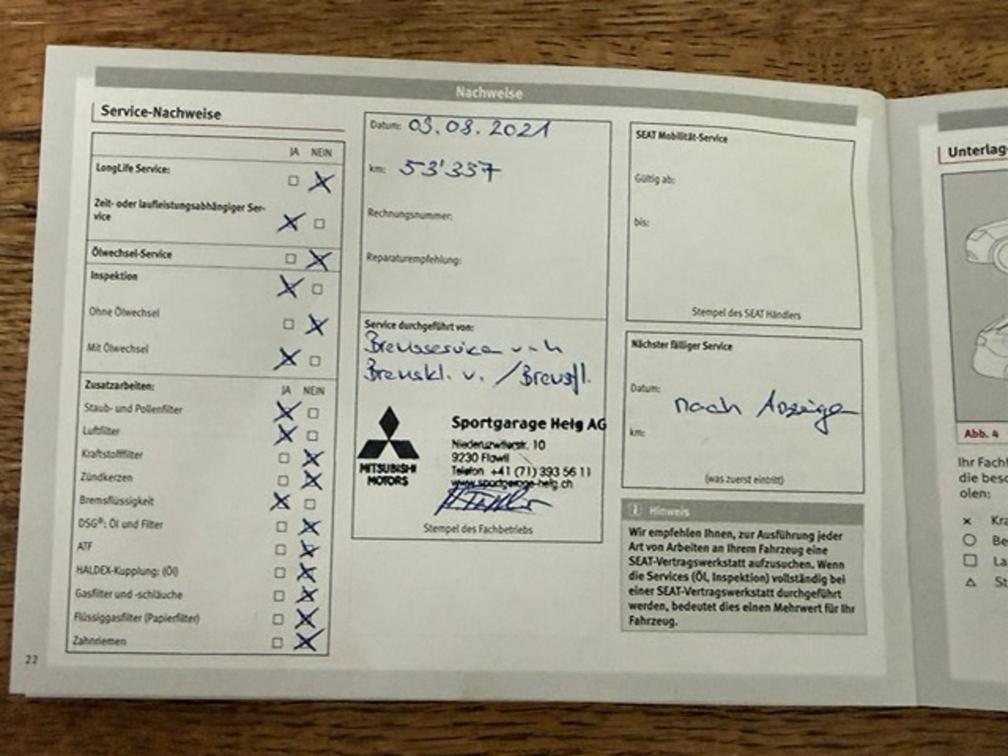 Nachweise
Service-Nachweise
JA NEIN
LongLife Service:
Zeit- oder laufleistungsabhängiger Ser-
vice
Ölwechsel-Service
Inspektion
Ohne Ölwechsel
Mit Ölwechsel
Zusatzarbeiten: JA NEIN
Staub- und Pollenfilter
Luftfilter
Kraftstofffilter
Zündkerzen
Bremsflüssigkeit
DSG®: Öl und Filter
ATF
HALDEX-Kupplung: (Öl)
Gasfilter und -schläuche
Flüssiggasfilter (Papierfilter)
Zahnriemen
22
Datum: 03.08.2021
km: 53'337
Rechnungsnummer:
Reparaturempfehlung:
Service durchgeführt von:
Bremsservice v-h
Bremskl. v. / Bremsfl.
MITSUBISHI
MOTORS
Sportgarage Helg AG
Niederuzwilerstr. 10
9230 Flawil
Telefon +41 (71) 393 56 11
www.sportgarage-helg.ch
Stempel des Fachbetriebs
SEAT Mobilität-Service
Gültig ab:
bis:
Stempel des SEAT Händlers
Nächster fälliger Service
Datum: nach Anzeige
km:
(was zuerst eintritt)
i Hinweis
Wir empfehlen Ihnen, zur Ausführung jeder
Art von Arbeiten an Ihrem Fahrzeug eine
SEAT-Vertragswerkstatt aufzusuchen. Wenn
die Services (Öl, Inspektion) vollständig bei
einer SEAT-Vertragswerkstatt durchgeführt
werden, bedeutet dies einen Mehrwert für Ihr
Fahrzeug.
Unterlag
Abb. 4
Ihr Fachl
die besc
olen:
× Kra
Be
La
St